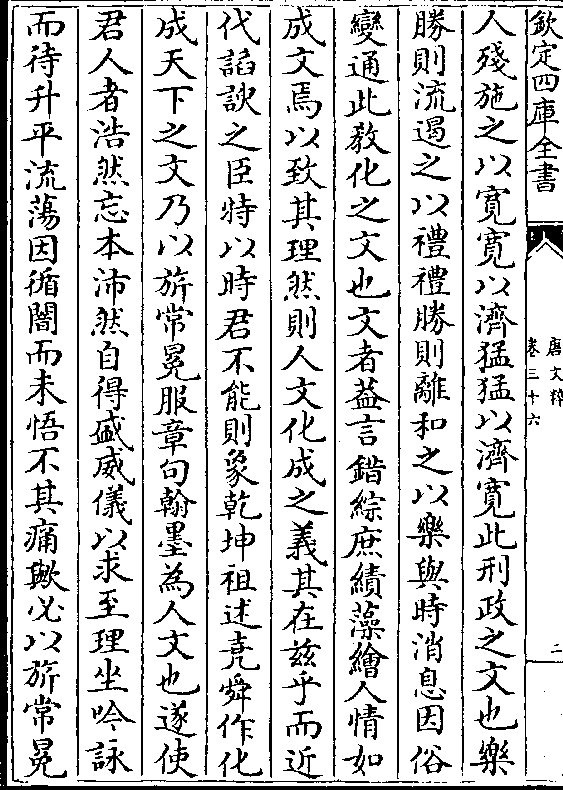 欽定四庫全書
唐文粹
卷三十六
二
人殘施之以寛寛以濟猛猛以濟寛此刑政之文也樂
勝則流遏之以禮禮勝則離和之以樂與時消息因俗
變通此教化之文也文者葢言錯綜庶績藻繪人情如
成文焉以致其理然則人文化成之義其在兹乎而近
代謟諛之臣特以時君不能則象乾坤祖述堯舜作化
成天下之文乃以旂常冕服章句翰墨為人文也遂使
君人者浩然忘本沛然自得盛威儀以求至理坐吟詠
而待升平流蕩因循闇而未悟不其痛歟必以旂常冕